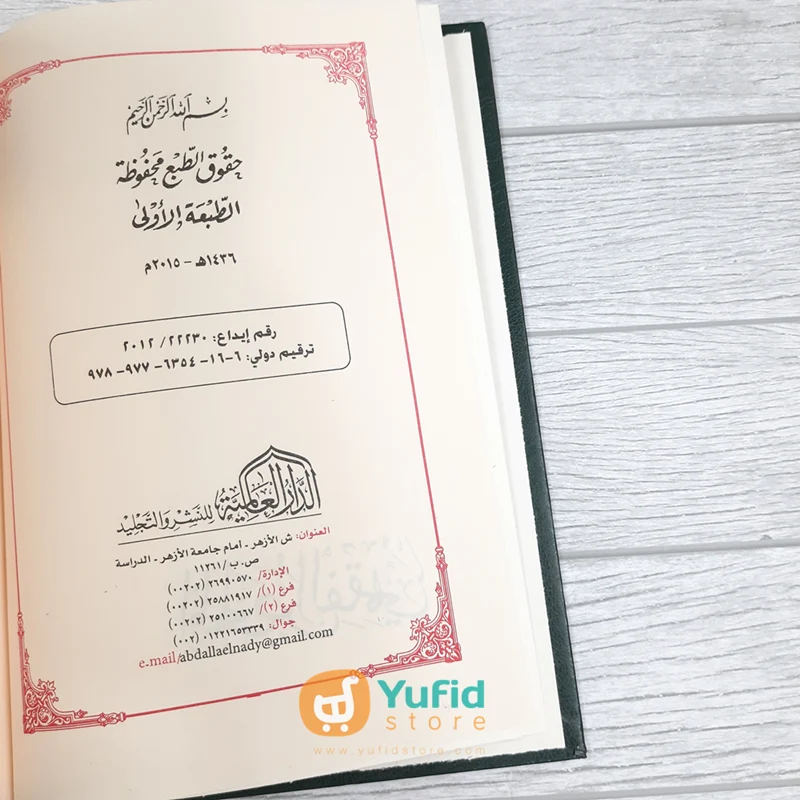 بسم الله الرحمن الرحيم
حقوق الطبع محفوظة
الطبعة الأولى
١٤٣٦هـ - ٢٠١٥م
رقم إيداع: ٢٢٢٣٠/ ٢٠١٢
ترقيم دولي: ٦-١٦- ٦٣٥٤- ٩٧٧- ٩٧٨
الدار العالمية للنشر والتجليد
العنوان: ش الأزهر - أمام جامعة الأزهر - الدراسة
ص.ب/ ١١٢٦١
الإدارة/ ٢٦٩٩٠٥٧٠ (٠٠٢٠٢)
فرع (١)/ ٢٥٨٨١٩١٧ (٠٠٢٠٢)
فرع (٢)/ ٢٥١٠٠٦٦٧ (٠٠٢٠٢)
جوال: ٠١٢٢١٦٥٣٣٣٩ (٠٠٢)
e.mail/abdallaelnady@gmail.com
Yufid
store
www.yufidstore.com